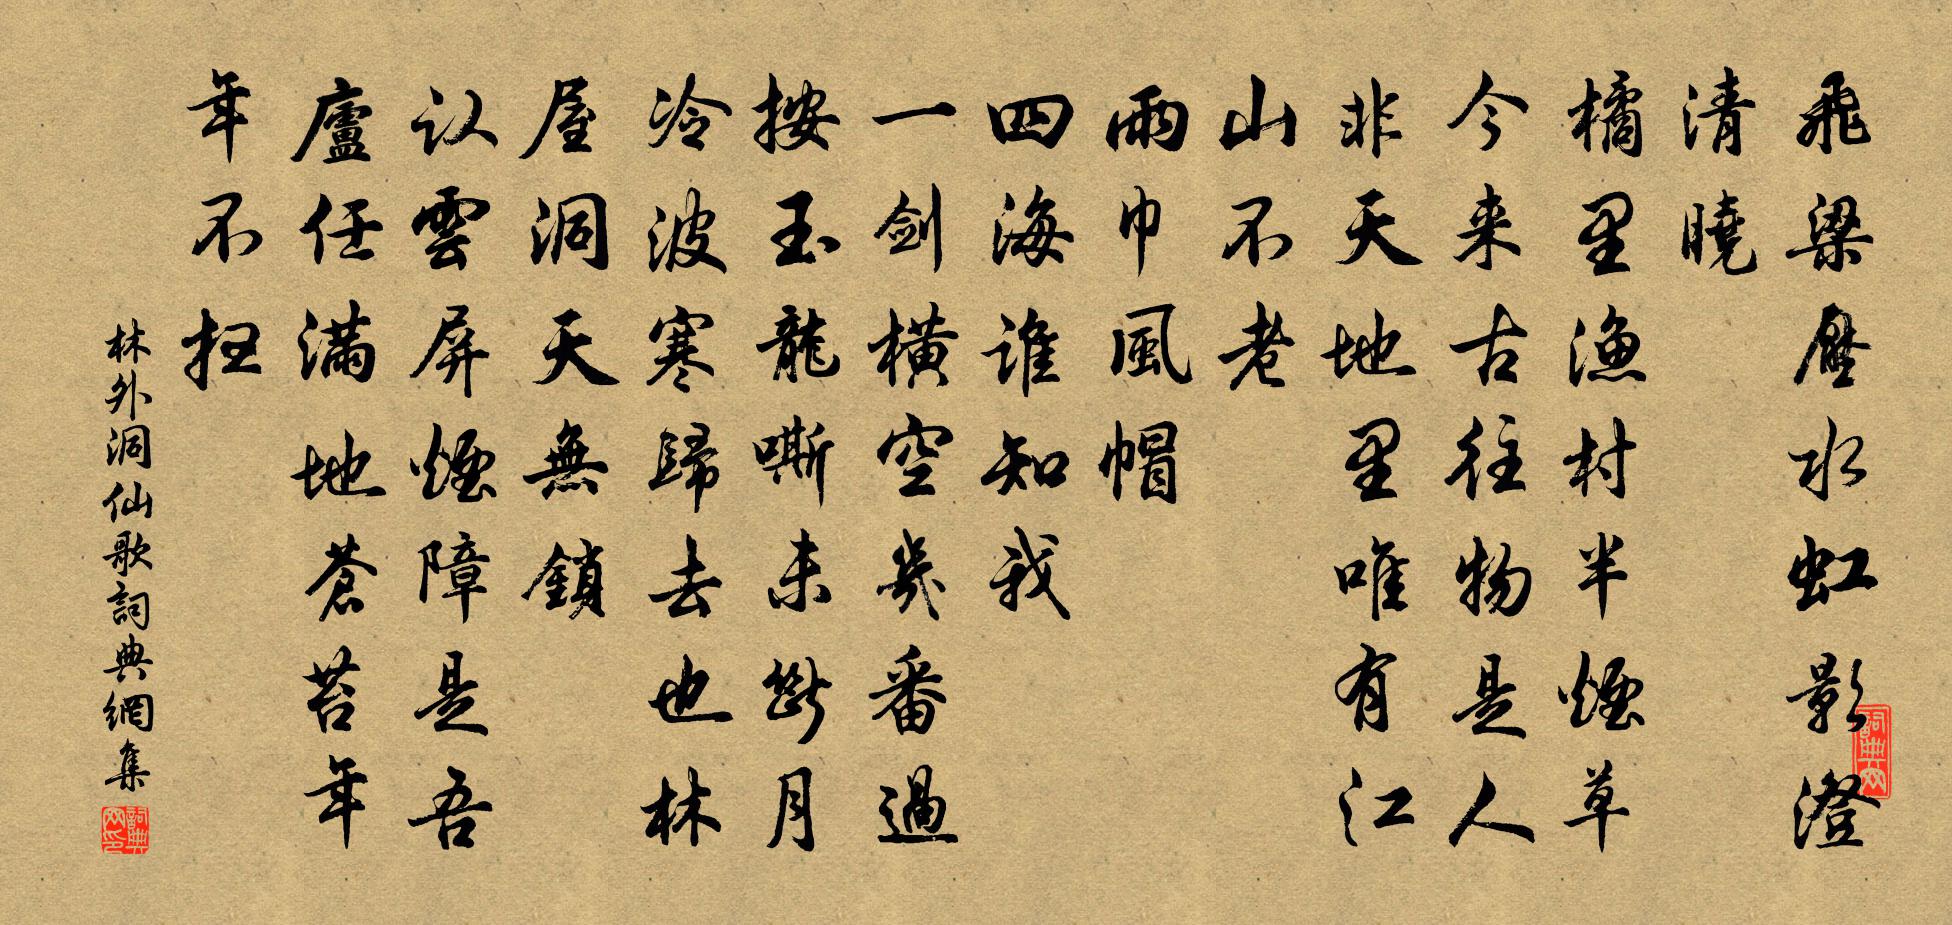 飛梁壓水虹影澄
清曉
橘里漁村半煙草
今来古往物是人
非天地里唯有江
山不老
雨巾風帽
四海誰知我
一剑横空幾番過
按玉龍嘶未斷月
冷波寒歸去也林
屋洞天無鎖
认雲屏煙障是吾
廬任满地蒼苔年
年不扫
林外洞仙歌詞典網集
詞典网
詞典网印